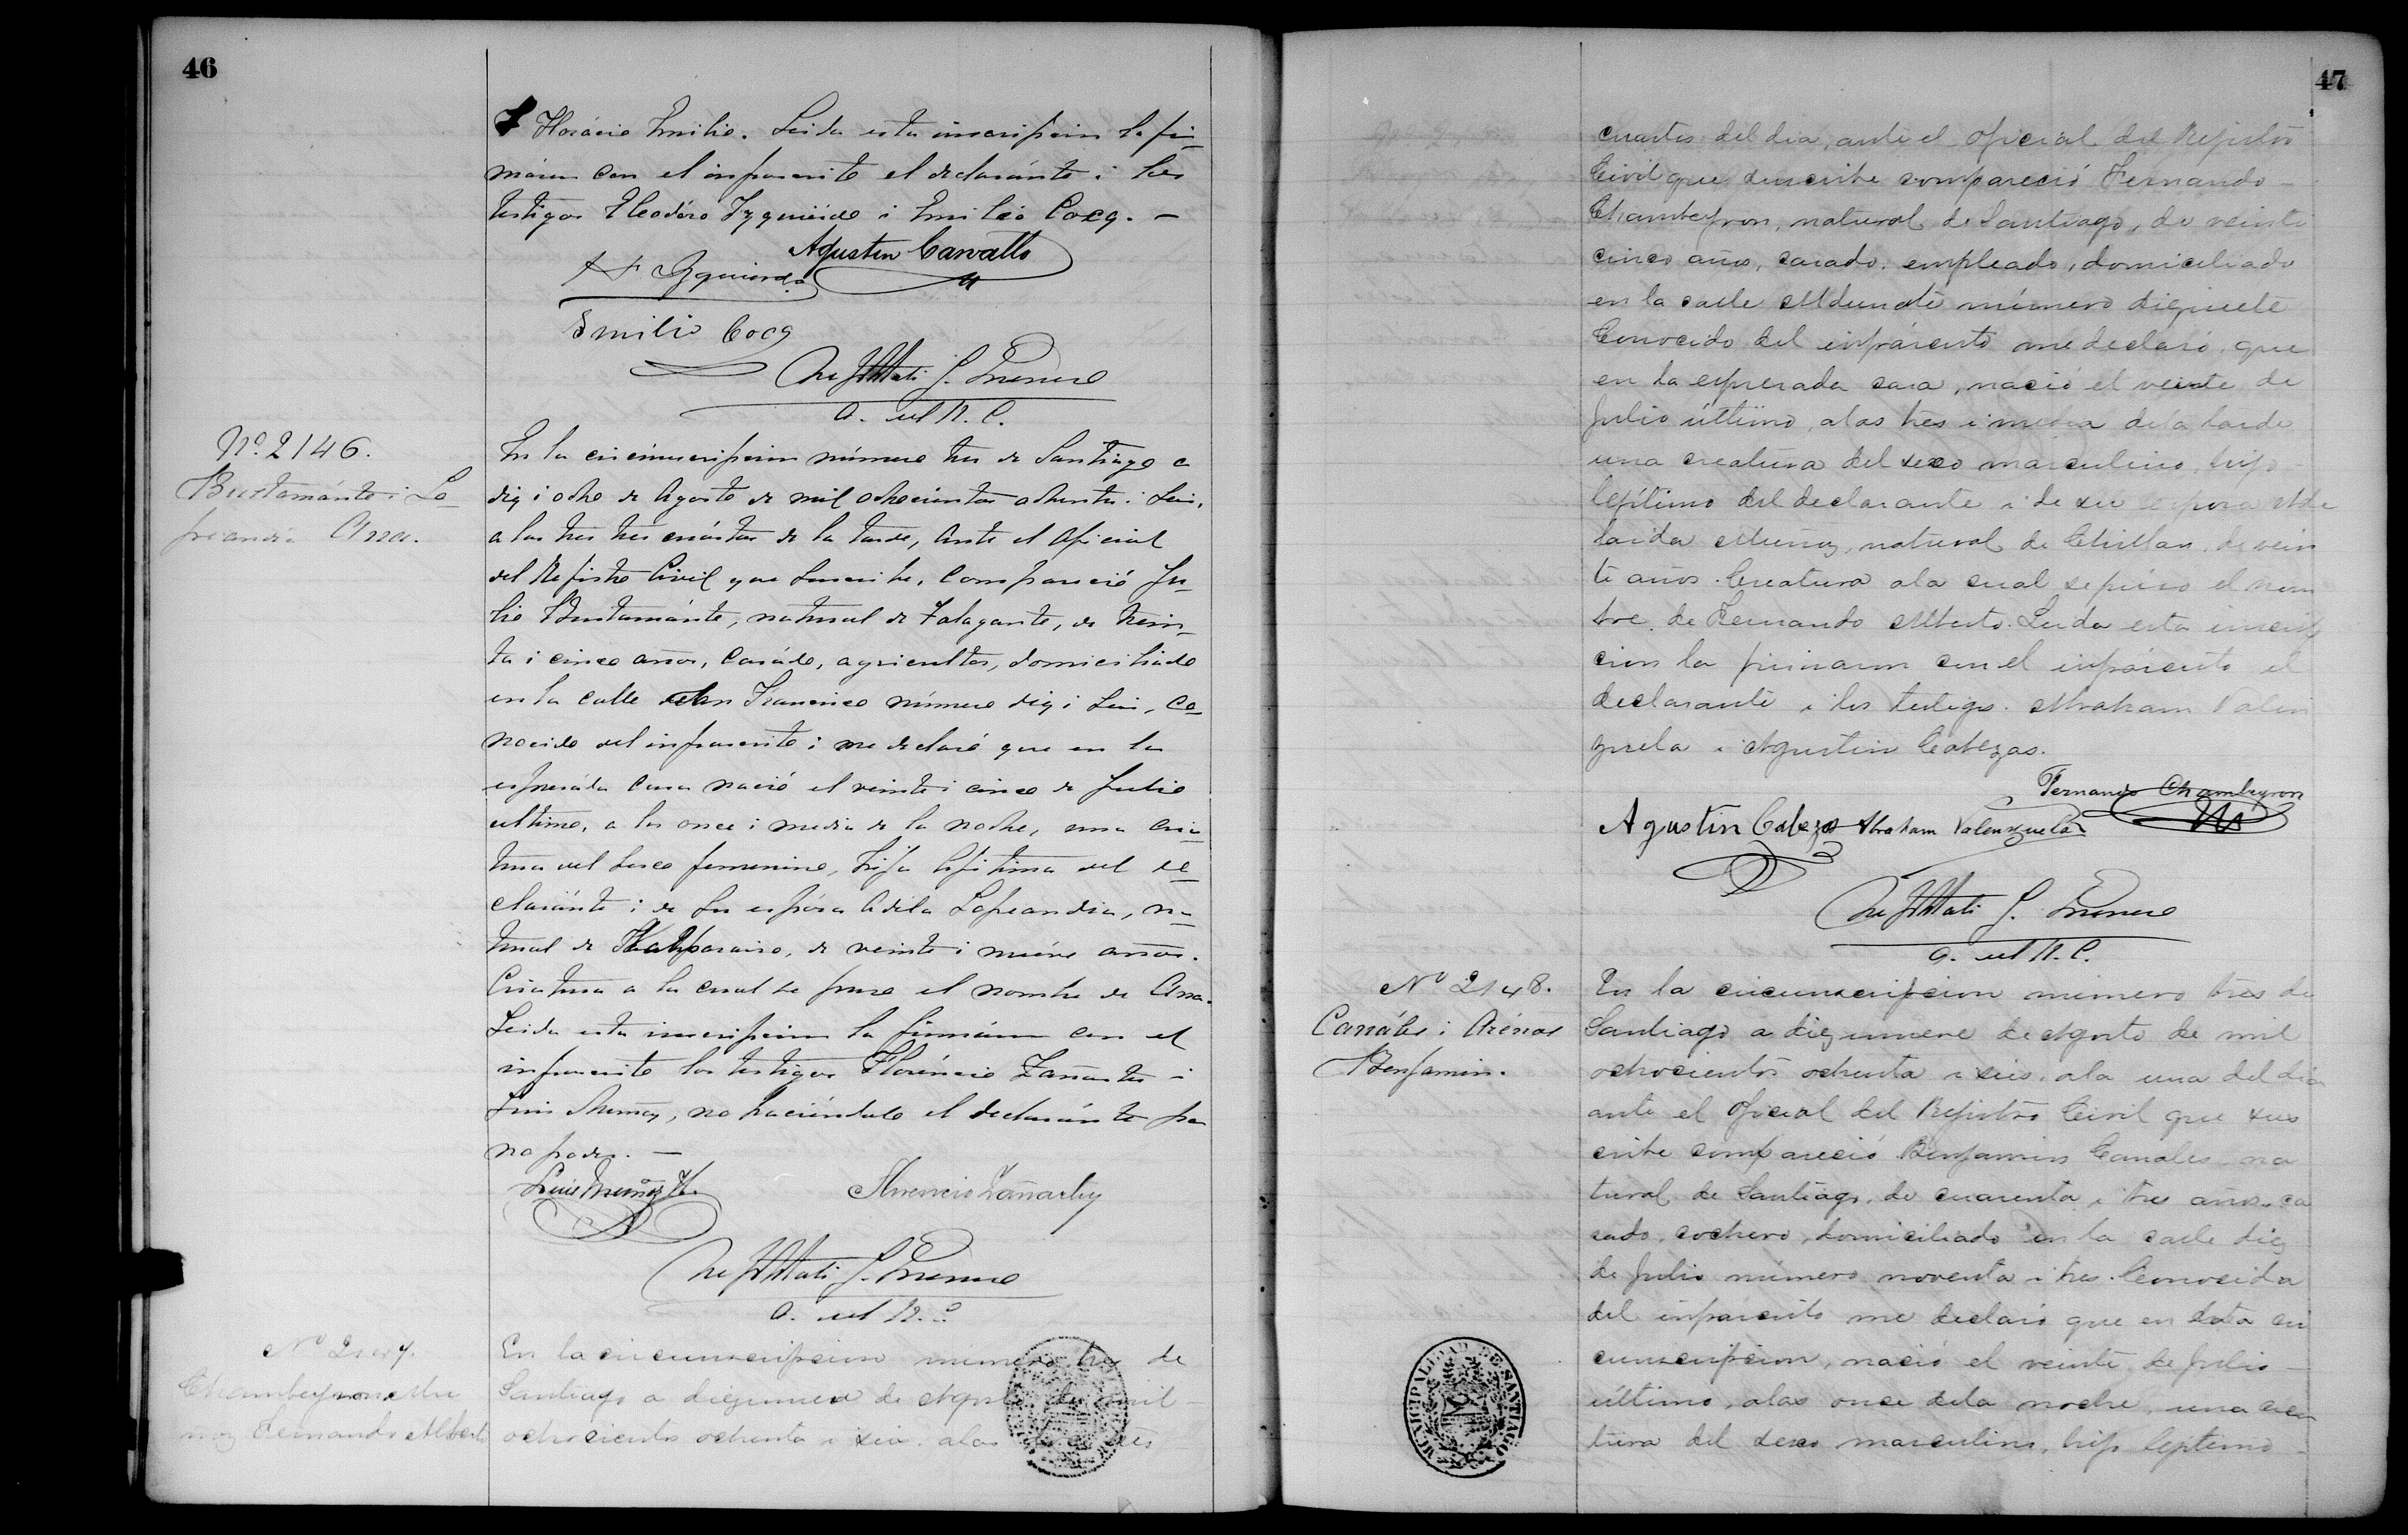 46
Horácio Emilio. Leida esta inscripcion la fir-
máron con el infrascrito el declaránte i los
testigos Eleodóro Izquiérdo i Emilio Cocq. —
Agustin Carvallo
Izquierdo
Emilio Cocq
O. del R. C.
Nº 2146.
Bustamánte i Lo-
preandia Ana.
En la circunscripcion número tres de Santiago a
diez i ocho de Agosto de mil ochocientos ochenta i seis,
a las tres tres cuártos de la tarde, ante el Oficial
del Rejistro Civil que suscribe, compareció Ju-
lio Bustamánte, natural de Talagante, de trein-
ta i cinco años, casádo, agricultor, domiciliado
en la calle San Francisco número diez i seis, co-
nocido del infrascrito i me declaró que en la
espresáda casa nació el veinte i cinco de Julio
último, a las once i media de la noche, una cria-
tura del sexo femenino, hija lejítima del de-
claránte i de su espósa Adela Lopreandia, na-
tural de Valparaiso, de veinte i nuéve años.
Criatura a la cual se puso el nombre de Ana.
Leida esta inscripcion la firmáron con el
infrascrito los testigos Floréncio Zañartu i
Luis Muñoz, no haciéndolo el declaránte por
no poder. —
Luis Muñoz H.
Florencio Zañartu
O. del R. C.
Nº 2147.
Chambeyron i Mu
ñoz Fernando Alberto
En la circunscripcion número tres de
Santiago a diezinueve de Agosto de mil
ochocientos ochenta i seis a las tres
47
cuartos del dia, ante el Oficial del Rejistro
Civil que suscribe compareció Fernando
Chambeyron, natural de Santiago, de veinti
cinco años, casado, empleado, domiciliado
en la calle Aldunate número diezisiete
Conocido del infrascrito me declaró que
en la espresada casa, nació el veinte de
Julio último, a las tres i media de la tarde
una creatura del sexo masculino, hijo
lejítimo del declarante i de su esposa Ade
laida Muñoz, natural de Chillan, de vein
te años. Creatura a la cual se puso el nom
bre de Fernando Alberto. Leida esta inscrip
cion la firmaron con el infrascrito el
declarante i los testigos Abraham Valen
zuela i Agustin Cabezas.
Fernando Chambeyron
Agustin Cabezas Abraham Valenzuela
O. del R. C.
Nº 2148.
Canáles i Arénas
Benjamin.
En la circunscripcion número tres de
Santiago a diezinueve de Agosto de mil
ochocientos ochenta i seis, a la una del dia
ante el Oficial del Rejistro Civil que sus
cribe compareció Benjamin Canales na
tural de Santiago, de cuarenta i tres años, ca
sado, cochero, domiciliado en la calle diez
de Julio número noventa i tres. Conocida
del infrascrito me declaró que en esta cir
cunscripcion, nació el veinte de Julio
último, a las once de la noche, una crea
tura del sexo masculino, hijo lejítimo
MUNICIPALIDAD DE SANTIAGO